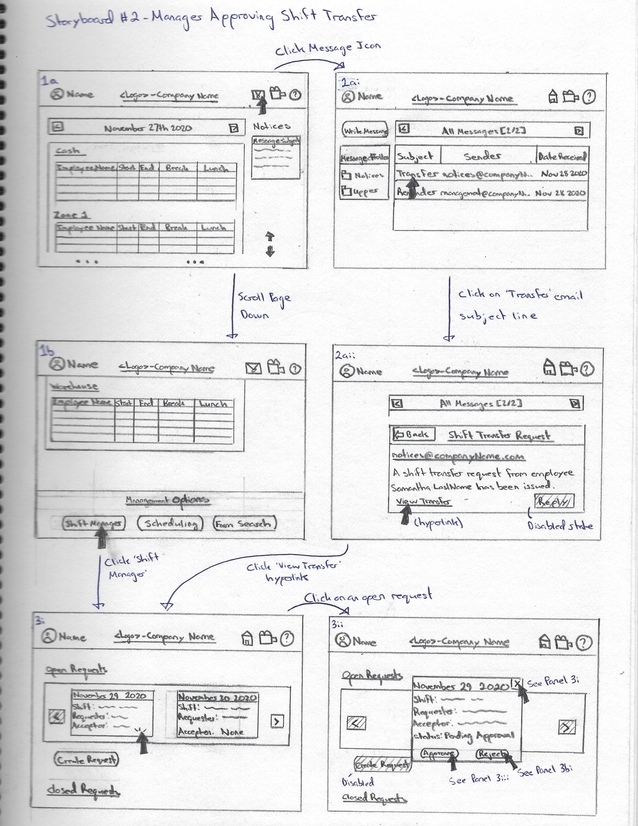 Storyboard #2 - Managers Approving Shift Transfer
Click Message Icon
1a
Name
<Logo>-Company Name
?
November 27th 2020
Notices
Cash
Employee Name Start End Break Lunch
Zone 1
Employee Name Start End Break Lunch
1ai
Name
<Logo>-Company Name
?
Write Message
All Messages [2/2]
Subject Sender Date Received
Notices
Transfer notices@companyN.. Nov 28 2020
Nov 28 2020
Scroll Page
Down
Click on 'Transfer' email
subject line
1b
Name
<Logo>-Company Name
?
Warehouse
Employee Name Start End Break Lunch
Management Options
Shift Manager Scheduling Form Search
2aii
Name
<Logo>-Company Name
?
All Messages [2/2]
Back Shift Transfer Request
notices@companyName.com
A shift transfer request from employee
Samantha LastName has been issued.
View Transfer Reply
(hyperlink)
Disabled state
Click 'Shift
Manager'
Click 'View Transfer'
hyperlink
Click on an open request
3i
Name
<Logo>-Company Name
?
Open Requests
November 29 2020
Shift:
Requester:
Acceptor:
November 20 2020
Shift:
Requester:
Acceptor: None
Create Request
Closed Requests
3ii
Name
<Logo>-Company Name
?
Open Requests
November 29 2020 X
See Panel 3i
Shift:
Requester:
Acceptor:
Status: Pending Approval
Approve Reject
Create Request
See Panel 3iii
See Panel 3bi
Disabled
Closed Requests